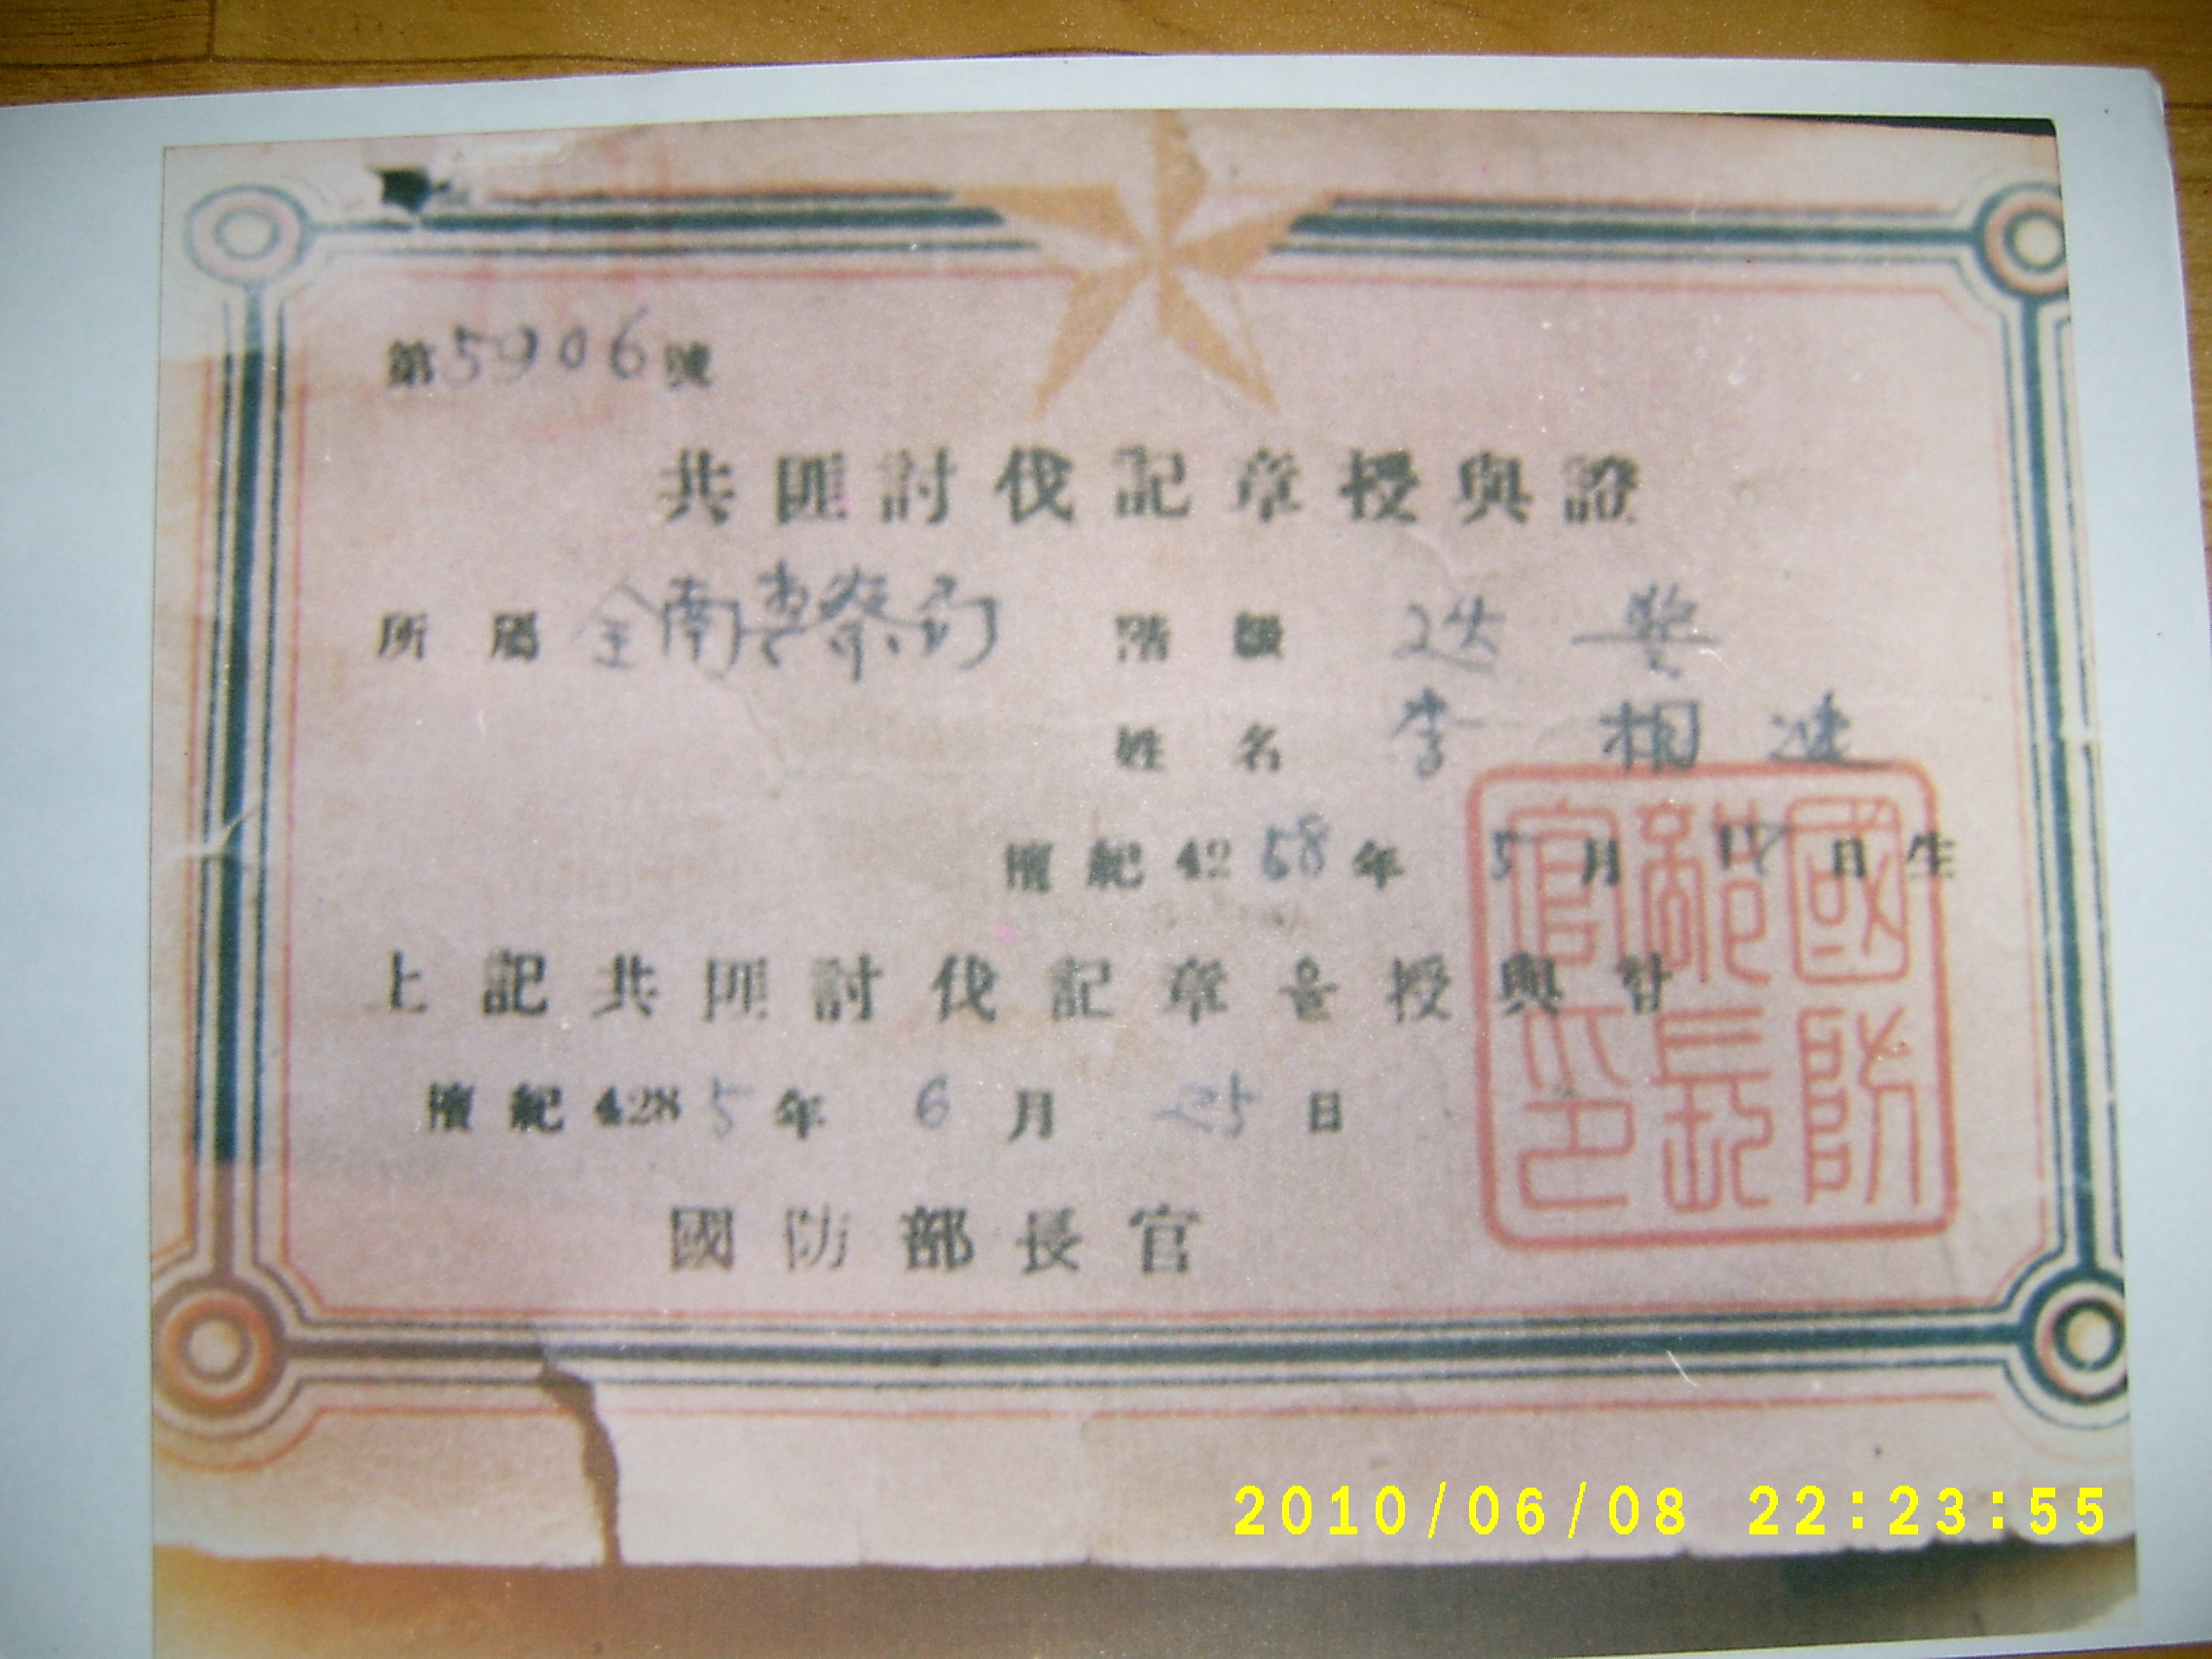 第5906號
共匪討伐記章授與證
所屬 全南警察局 階級 巡警
姓名 李相連
檀紀4258年5月17日生
上記共匪討伐記章을授與함
檀紀4285年6月25日
國防部長官
國防部長官印
2010/06/08 22:23:55